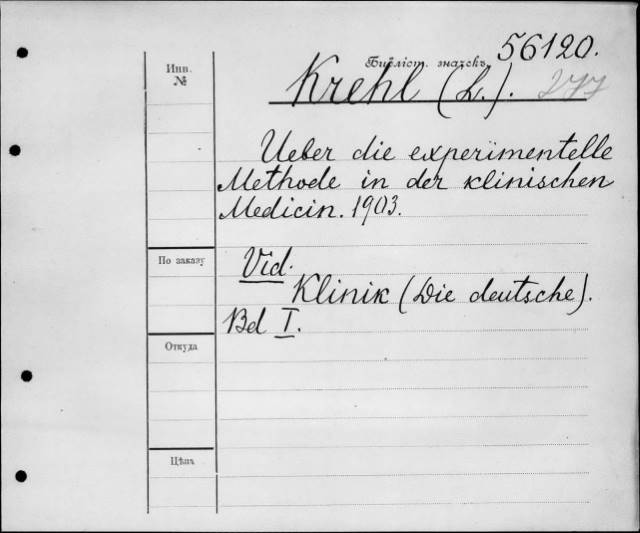 56120.
Инв. №
Библіот. значекъ
Krehl (L.).
277
Ueber die experimentelle
Methode in der klinischen
Medicin. 1903.
По заказу
Vid.
Klinik (Die deutsche).
Bd I.
Откуда
Цѣна